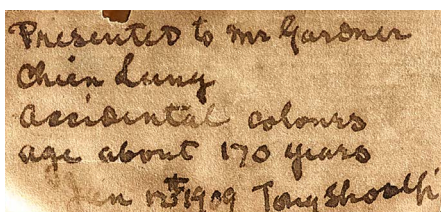 Presented to Mr Gardner
Chien Lung
Accidental colours
age about 170 years
Jan 1909 Tony